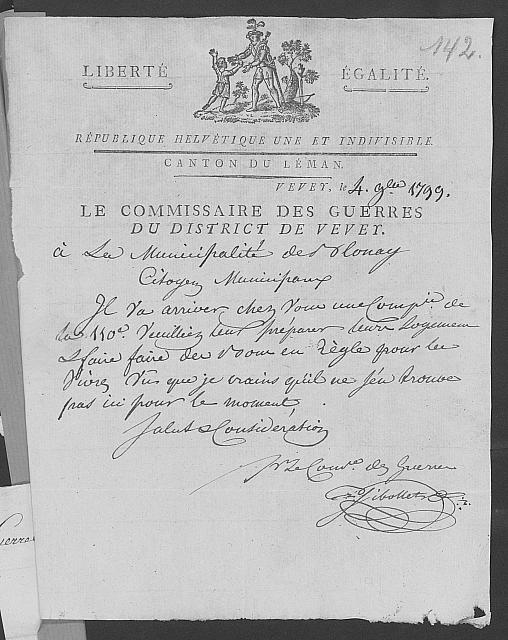 142.
LIBERTÉ ÉGALITÉ.
RÉPUBLIQUE HELVÉTIQUE UNE ET INDIVISIBLE.
CANTON DU LÉMAN.
VEVEY, le 4. 9bre 1799.
LE COMMISSAIRE DES GUERRES
DU DISTRICT DE VEVEY.
à La Municipalité de Blonay
Citoyens Municipaux
Il va arriver chez vous une Compie de
la 110e. Veuilliez leur préparer leurs Logement
& faire faire des Bons en Règle pour les
Vivres Vus que je crains qu'il ne s'en trouve
pas ici pour le moment,
Salut & Considération
pr Le Comre des Guerres